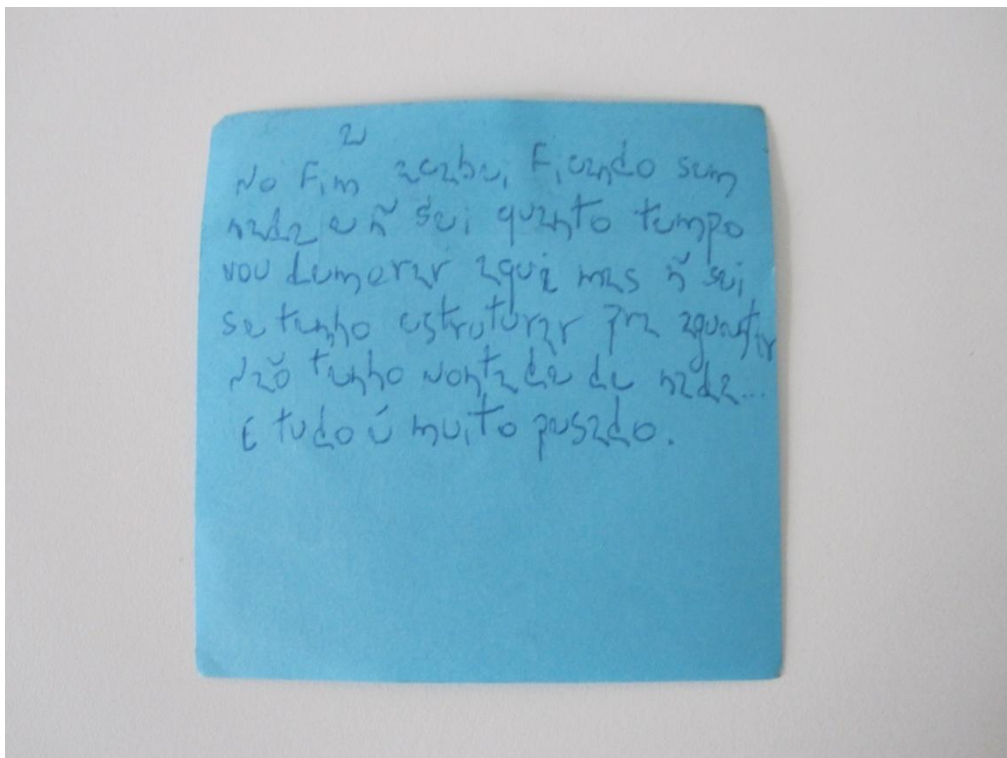 e
No Fim acabei Ficando sem
nada e ñ sei quanto tempo
vou demorar aqui mas ñ sei
se tenho estruturar pra aguentar
Não tenho vontade de nada...
E tudo é muito pesado.